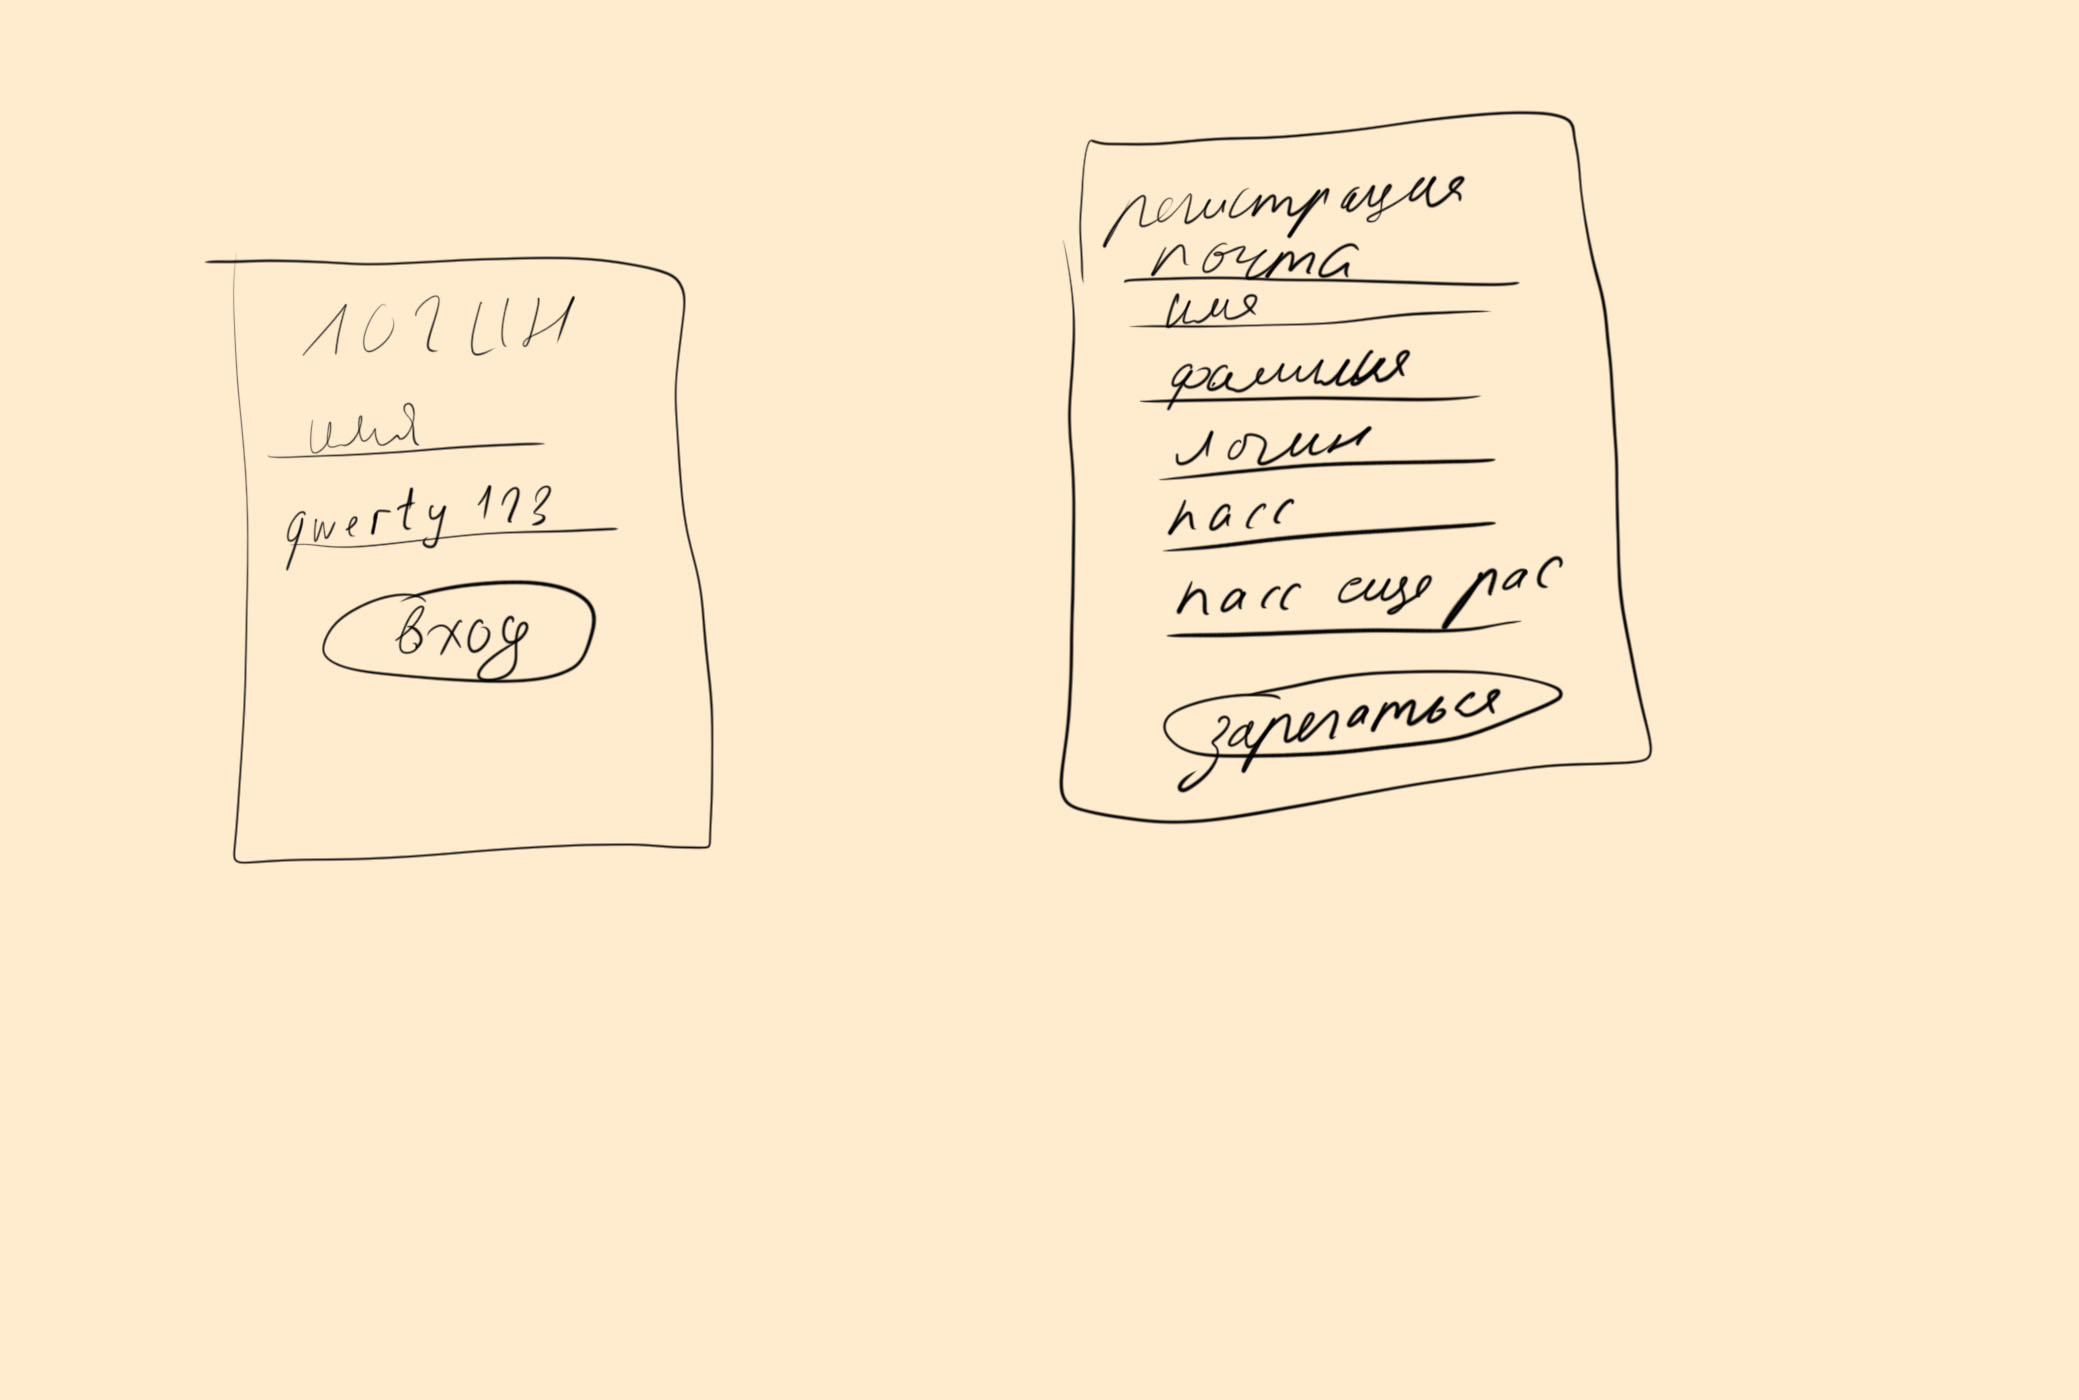 логин
имя
qwerty 123
вход
регистрация
почта
имя
фамилия
логин
пасс
пасс еще рас
зарегаться